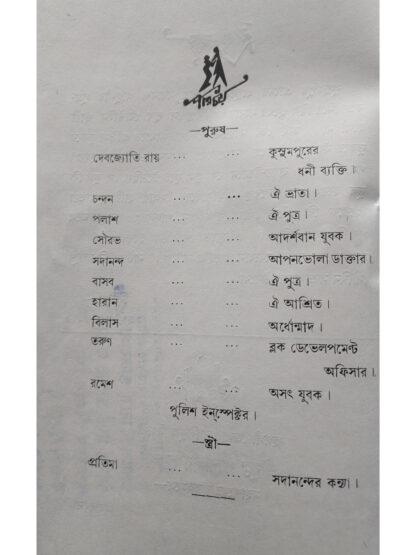 পরিচয়
—পুরুষ—
দেবজ্যোতি রায় ... ... কুসুমপুরের
ধনী ব্যক্তি।
চন্দন ... ... ঐ ভ্রাতা।
পলাশ ... ... ঐ পুত্র।
সৌরভ ... ... আদর্শবান যুবক।
সদানন্দ ... ... আপনভোলা ডাক্তার।
বাসব ... ... ঐ পুত্র।
হারান ... ... ঐ আশ্রিত।
বিলাস ... ... অর্ধোন্মাদ।
তরুণ ... ... ব্লক ডেভেলপমেন্ট
অফিসার।
রমেশ ... ... অসৎ যুবক।
পুলিশ ইন্‌স্পেক্টর।
—স্ত্রী—
প্রতিমা ... ... সদানন্দের কন্যা।